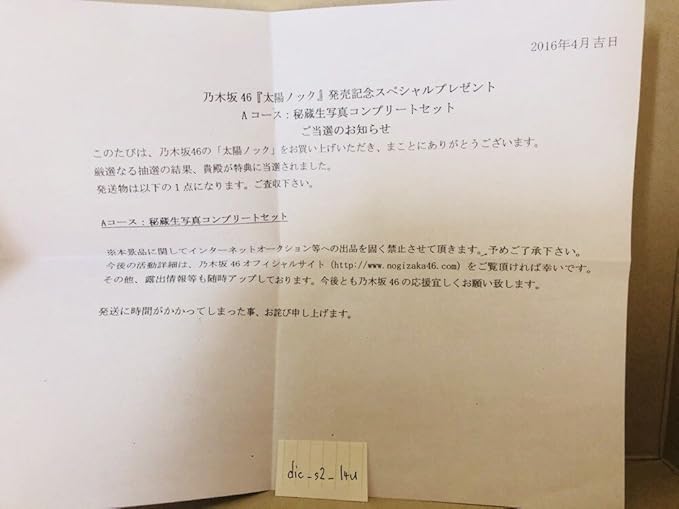 2016年4月吉日
乃木坂46『太陽ノック』発売記念スペシャルプレゼント
Aコース：秘蔵生写真コンプリートセット
ご当選のお知らせ
このたびは、乃木坂46の「太陽ノック」をお買い上げいただき、まことにありがとうございます。
厳選なる抽選の結果、貴殿が特典に当選されました。
発送物は以下の１点になります。ご査収下さい。
Aコース：秘蔵生写真コンプリートセット
※本景品に関してインターネットオークション等への出品を固く禁止させて頂きます。予めご了承下さい。
今後の活動詳細は、乃木坂46オフィシャルサイト（http://www.nogizaka46.com）をご覧頂ければ幸いです。
その他、露出情報等も随時アップしております。今後とも乃木坂46の応援宜しくお願い致します。
発送に時間がかかってしまった事、お詫び申し上げます。
dic_s2_l4u